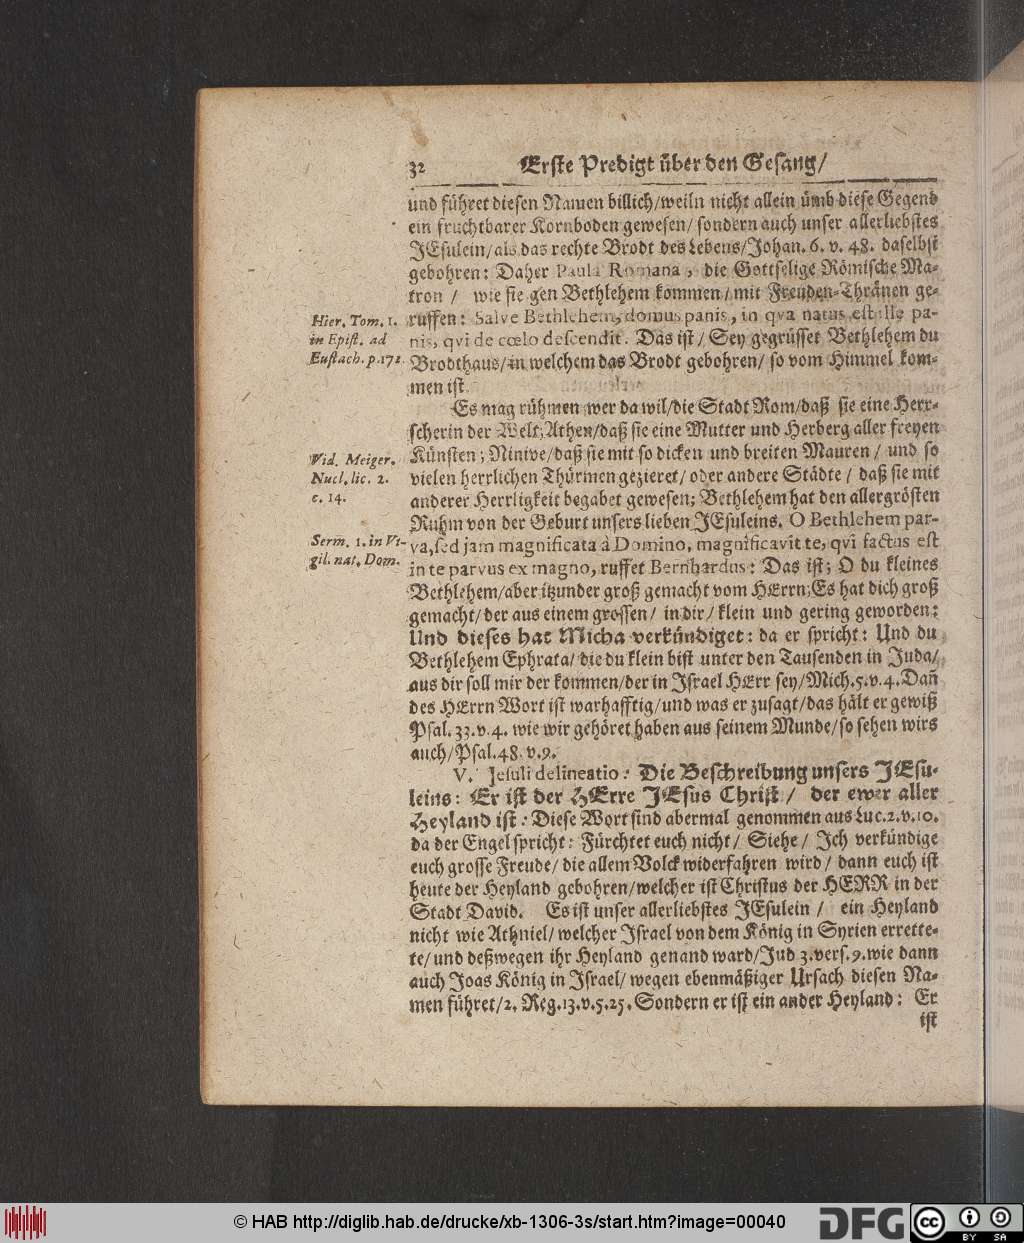 32 Erste Predigt über den Gesang/
und führet diesen Namen billich/weiln nicht allein ümb diese Gegend
ein fruchtbarer Kornboden gewesen/sondern auch unser allerliebstes
JEsulein/als das rechte Brodt des Lebens/Johan. 6. v. 48. daselbst
gebohren: Daher Paula Romana, die Gottselige Römische Ma-
tron / wie sie gen Bethlehem kommen/mit Freuden-Thränen ge-
Hier. Tom. 1.
in Epist. ad
Eustach. p. 172.
ruffen: Salve Bethlehem, domus panis, in qva natus est ille pa-
nis, qvi de cœlo descendit. Das ist/ Sey gegrüsset Bethlehem du
Brodthaus/in welchem das Brodt gebohren/ so vom Himmel kom-
men ist.
Es mag rühmen wer da wil/die Stadt Rom/daß sie eine Herr-
scherin der Welt;Athen/daß sie eine Mutter und Herberg aller freyen
Vid. Meiger.
Nucl. lic. 2.
c. 14.
Künsten; Ninive/daß sie mit so dicken und breiten Mauren / und so
vielen herrlichen Thürmen gezieret/ oder andere Städte / daß sie mit
anderer Herrligkeit begabet gewesen; Bethlehem hat den allergrösten
Ruhm von der Geburt unsers lieben JEsuleins. O Bethlehem par-
Serm. 1. in Vi-
gil. nat. Dom.
va, sed jam magnificata à Domino, magnificavit te, qvi factus est
in te parvus ex magno, ruffet Bernhardus: Das ist; O du kleines
Bethlehem/aber itzunder groß gemacht vom HErrn;Es hat dich groß
gemacht/der aus einem grossen/ in dir/ klein und gering geworden:
Und dieses hat Micha verkündiget: da er spricht: Und du
Bethlehem Ephrata/die du klein bist unter den Tausenden in Juda/
aus dir soll mir der kommen/der in Israel HErr sey/Mich.5.v.4. Dañ
des HErrn Wort ist warhafftig/und was er zusagt/das hält er gewiß
Psal. 33. v. 4. wie wir gehöret haben aus seinem Munde/so sehen wirs
auch/Psal. 48. v. 9.
V. Jesuli delineatio: Die Beschreibung unsers JEsu-
leins: Er ist der HErre JEsus Christ/ der ewer aller
Heyland ist: Diese Wort sind abermal genommen aus Luc.2.v.10.
da der Engel spricht: Fürchtet euch nicht/ Siehe / Ich verkündige
euch grosse Freude/die allem Volck widerfahren wird/ dann euch ist
heute der Heyland gebohren/welcher ist Christus der HERR in der
Stadt David. Es ist unser allerliebstes JEsulein / ein Heyland
nicht wie Athniel/welcher Israel von dem König in Syrien errette-
te/und deßwegen ihr Heyland genand ward/Jud 3.vers.9.wie dann
auch Joas König in Israel/ wegen ebenmäßiger Ursach diesen Na-
men führet/2. Reg.13.v.5.25. Sondern er ist ein ander Heyland: Er
ist
© HAB http://diglib.hab.de/drucke/xb-1306-3s/start.htm?image=00040
DFG
cc BY SA